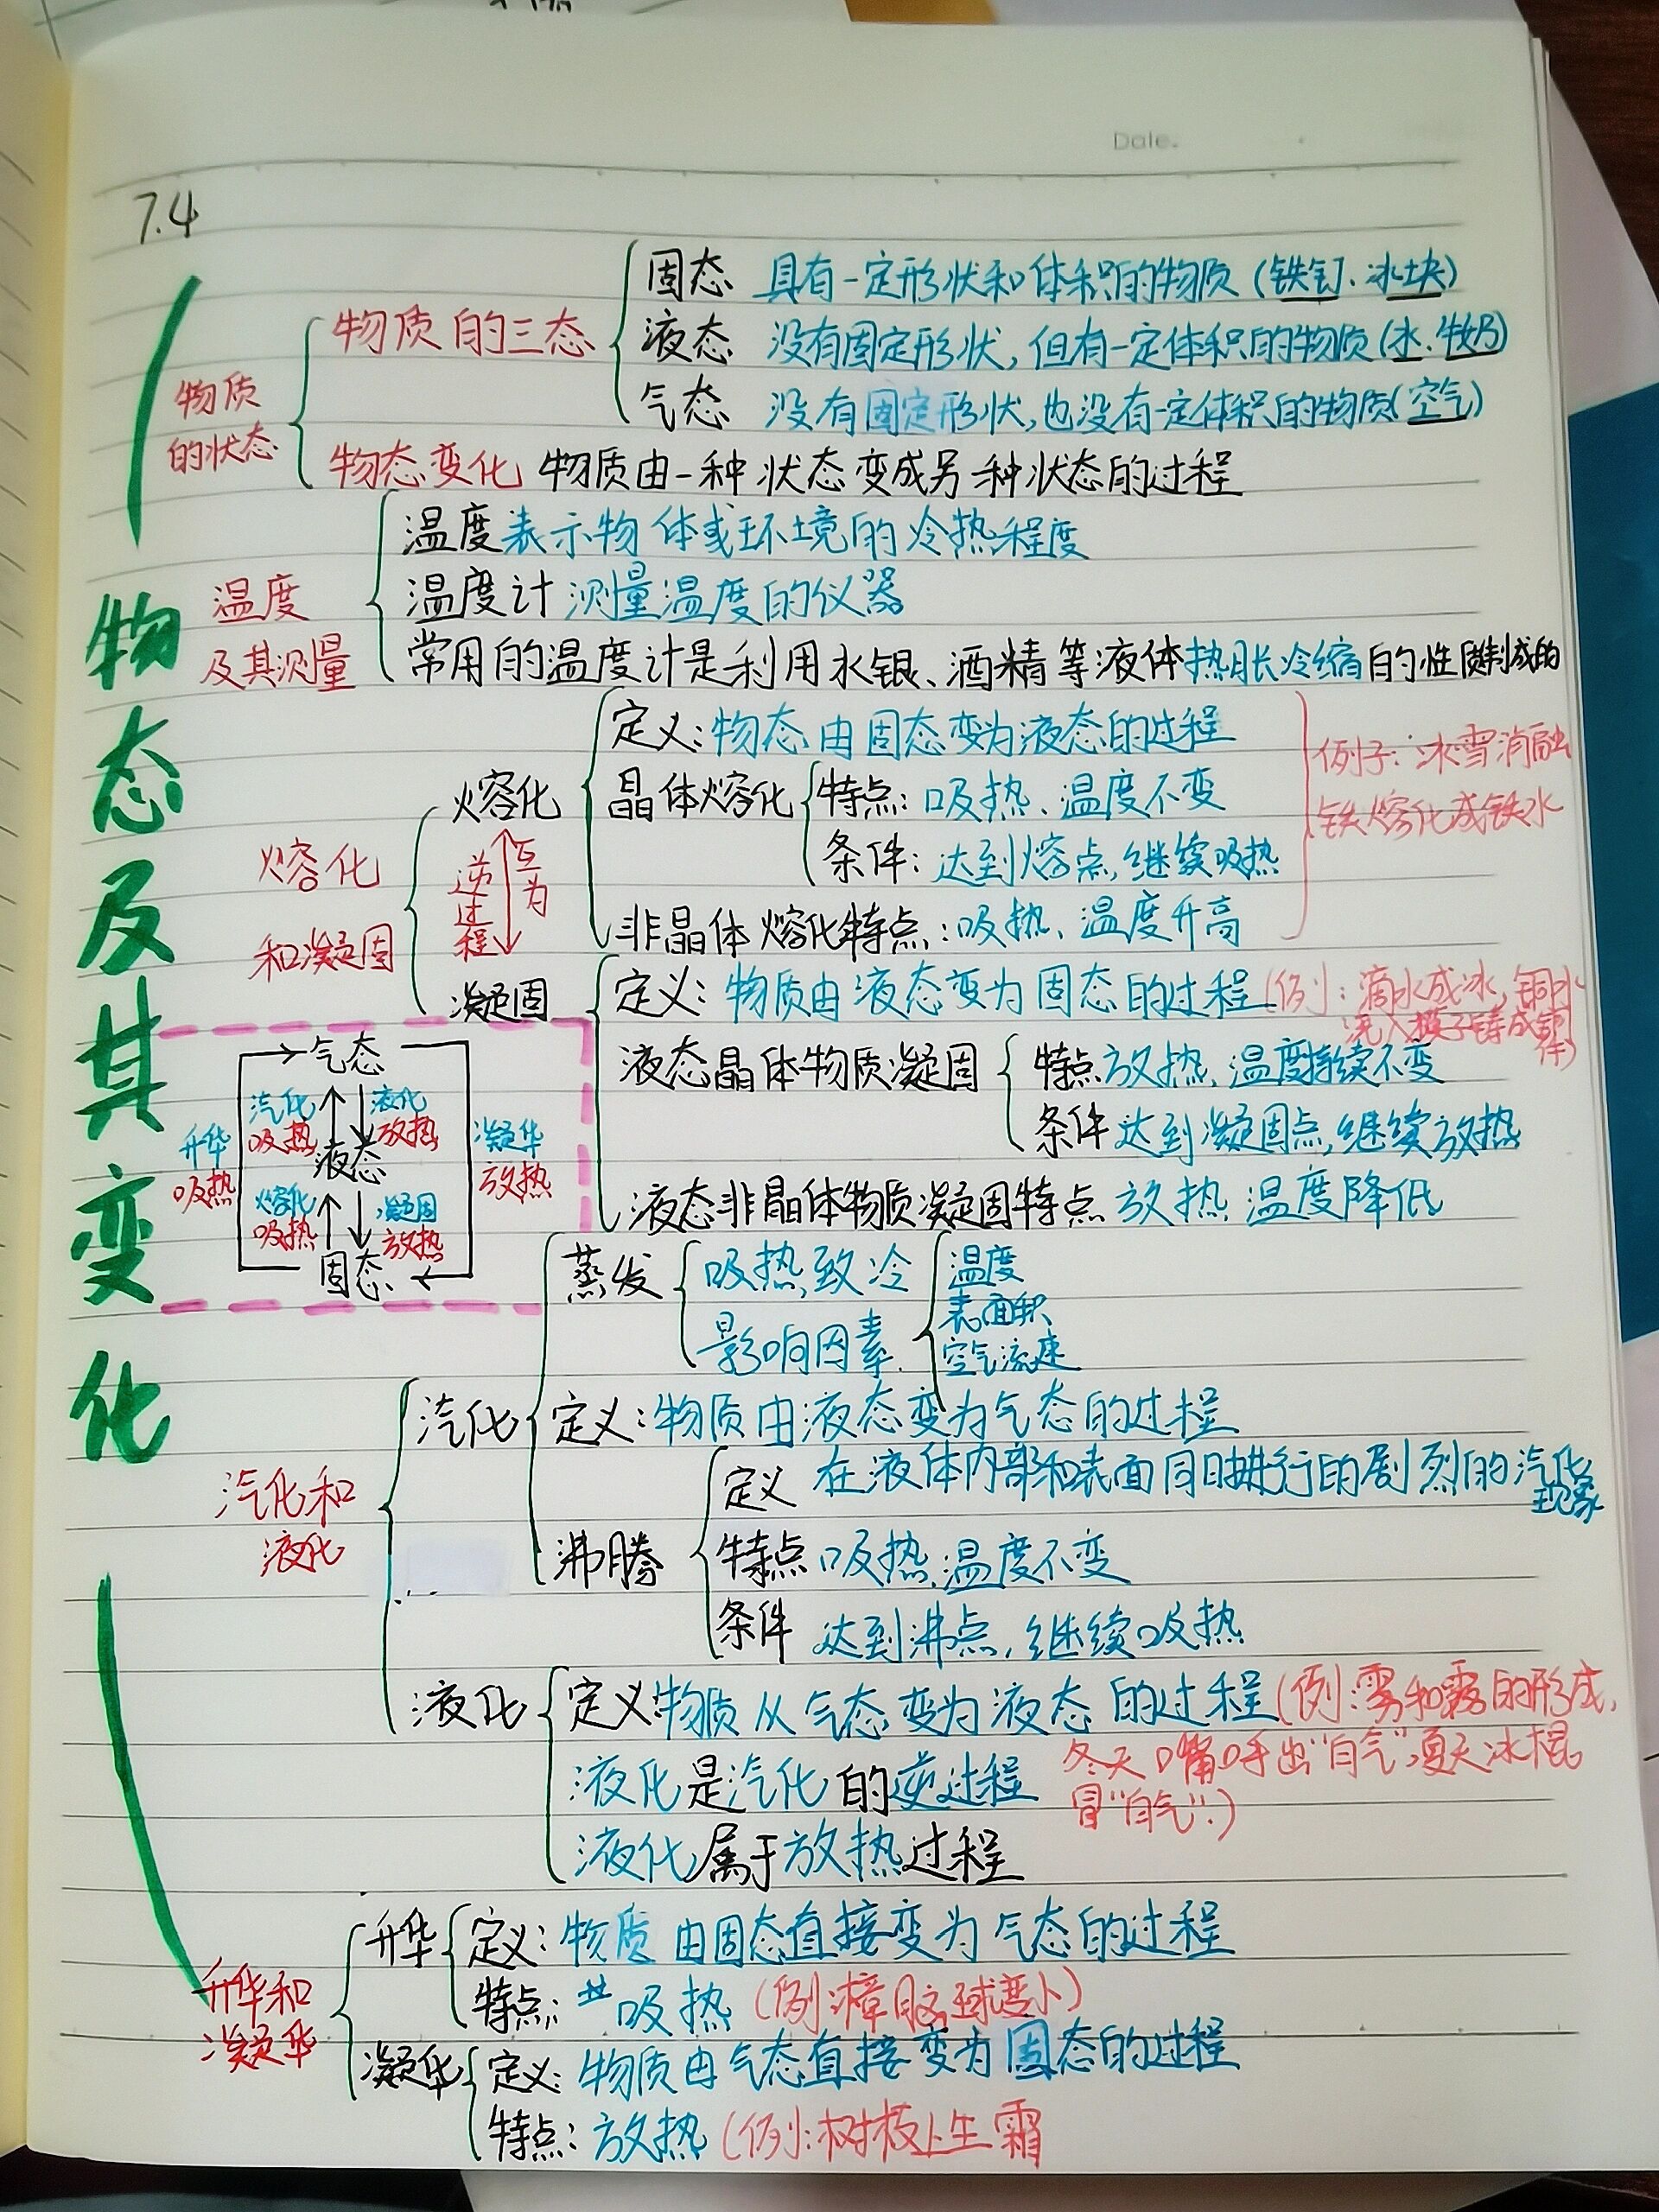 Date.
7.4
物态及其变化
物质
的状态
物质的三态
固态 具有一定形状和体积的物质(铁钉、冰块)
液态 没有固定形状,但有一定体积的物质(水、牛奶)
气态 没有固定形状,也没有一定体积的物质(空气)
物态变化 物质由一种状态变成另一种状态的过程
温度
及其测量
温度表示物体或环境的冷热程度
温度计 测量温度的仪器
常用的温度计是利用水银、酒精等液体热胀冷缩的性质制成的
熔化
和凝固
熔化
互为
逆过程
凝固
定义:物态由固态变为液态的过程
晶体熔化
特点:吸热、温度不变
条件:达到熔点,继续吸热
非晶体熔化特点:吸热、温度升高
例子:冰雪消融
铁熔化成铁水
定义:物质由液态变为固态的过程(例:滴水成冰,铜水
流入模子铸成铜
件)
液态晶体物质凝固
特点放热,温度持续不变
条件达到凝固点,继续放热
液态非晶体物质凝固特点 放热 温度降低
气态
汽化
吸热
液化
放热
升华
吸热
凝华
放热
液态
熔化
吸热
凝固
放热
固态
汽化和
液化
汽化
蒸发
吸热致冷
影响因素
温度
表面积
空气流速
定义:物质由液态变为气态的过程
沸腾
定义 在液体内部和表面同时进行的剧烈的汽化
现象
特点 吸热,温度不变
条件 达到沸点,继续吸热
液化
定义:物质从气态变为液态的过程(例:雾和露的形成,
冬天口嘴呼出“白气”,夏天冰棍
冒“白气”.)
液化是汽化的逆过程
液化属于放热过程
升华和
凝华
升华
定义:物质由固态直接变为气态的过程
特点:吸热(例:樟脑球变小)
凝华
定义:物质由气态直接变为固态的过程
特点:放热(例:树枝上生霜